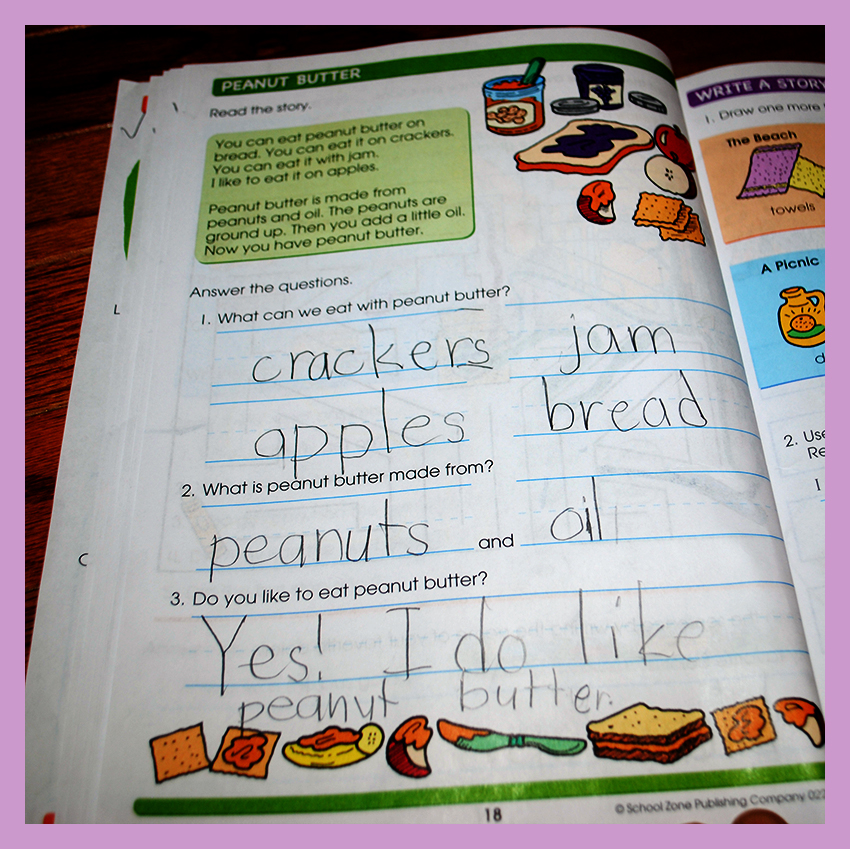 PEANUT BUTTER
Read the story.
You can eat peanut butter on
bread. You can eat it on crackers.
You can eat it with jam.
I like to eat it on apples.
Peanut butter is made from
peanuts and oil. The peanuts are
ground up. Then you add a little oil.
Now you have peanut butter.
Answer the questions.
1. What can we eat with peanut butter?
crackers jam
apples bread
2. What is peanut butter made from?
peanuts and oil
3. Do you like to eat peanut butter?
Yes! I do like
peanut butter.
18
© School Zone Publishing Company 022
L
C
WRITE A STORY
1. Draw one more
The Beach
towels
A Picnic
d
2. Use
Re
I